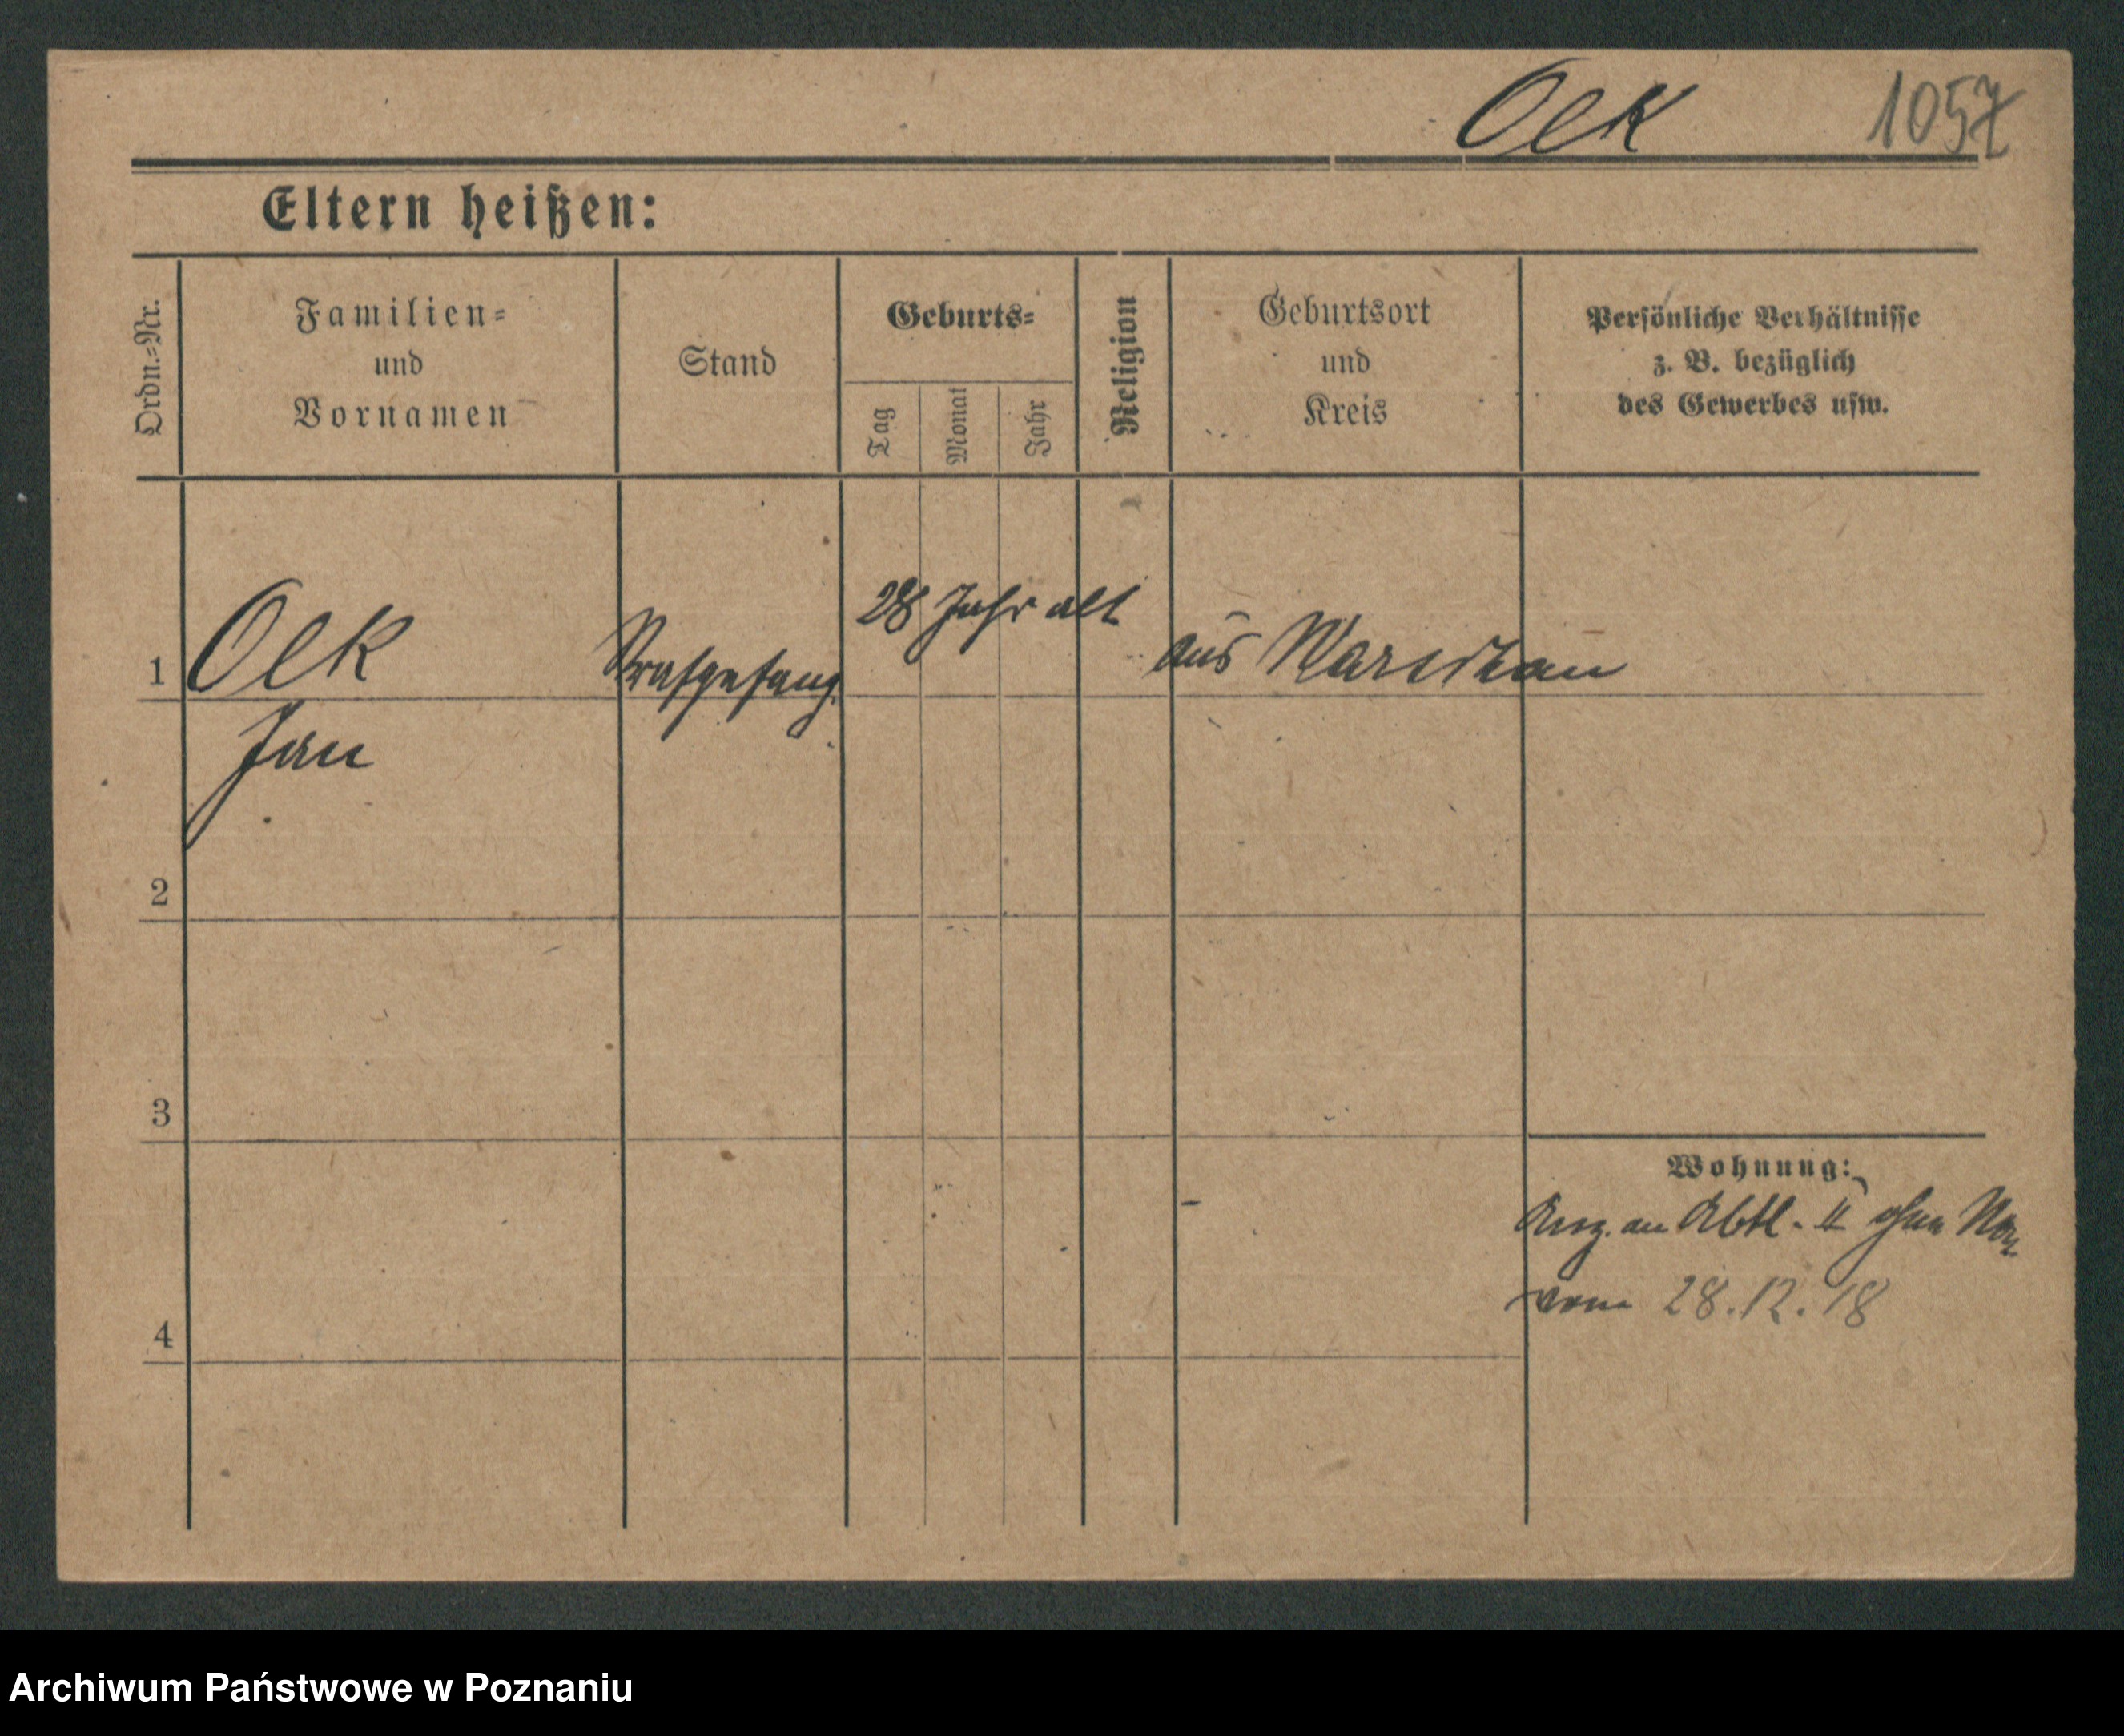 Olk 1057
Eltern heißen:
Ordn.-Nr.
Familien-
und
Vornamen
Stand
Geburts-
Tag
Monat
Jahr
Religion
Geburtsort
und
Kreis
Persönliche Verhältnisse
z. B. bezüglich
des Gewerbes usw.
1 Olk Strafgefang. 28 Jahr alt aus Warschau
Jan
2
3
Wohnung:
Anz. an Abtl. II ohne
vom 28.12.18
4
Archiwum Państwowe w Poznaniu